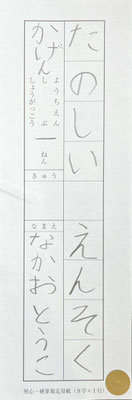 たのしい えんそく
かげん
ようちえん
しぶ
しょうがっこう
一ねん
きゅう
なまえ
なかおとうこ
硬筆規定用紙(9字×1行)